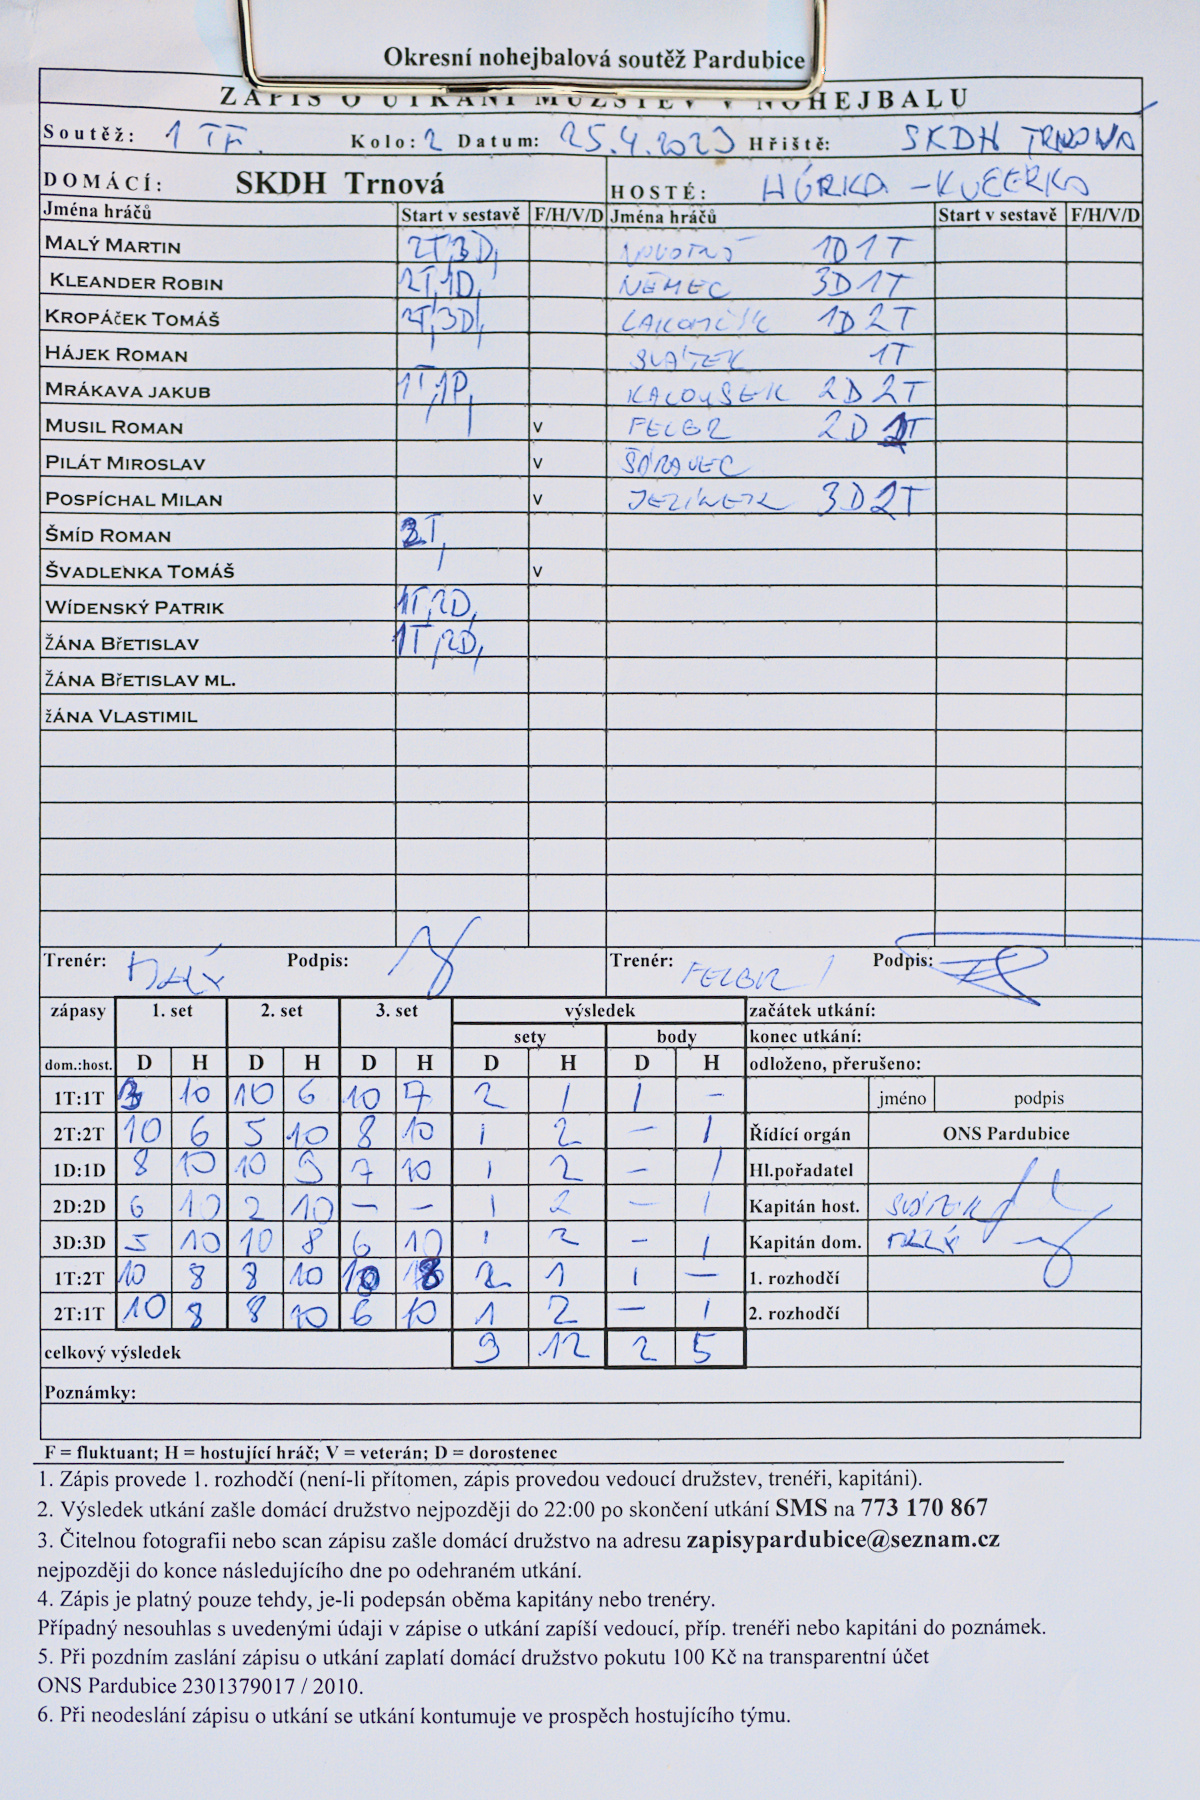 Okresní nohejbalová soutěž Pardubice
ZÁPIS O UTKÁNÍ MUŽSTEV V NOHEJBALU
Soutěž: 1 TF. Kolo: 2 Datum: 25.4.2023 Hřiště: SKDH TRNOVÁ
DOMÁCÍ: SKDH Trnová HOSTÉ: HŮRKA - KUČERKA
Jména hráčů Start v sestavě F/H/V/D Jména hráčů Start v sestavě F/H/V/D
MALÝ MARTIN 2T,3D, NOVOTNÝ 1D 1T
KLEANDER ROBIN 2T,1D, NĚMEC 3D 1T
KROPÁČEK TOMÁŠ 2T,3D, 1D 2T
HÁJEK ROMAN SVÁTEK 1T
MRÁKAVA JAKUB 1T,1D, KALOUSEK 2D 2T
MUSIL ROMAN V FELGR 2D T
PILÁT MIROSLAV V
POSPÍCHAL MILAN V JEZÍNEK 3D 2T
ŠMÍD ROMAN T,
ŠVADLENKA TOMÁŠ V
WÍDENSKÝ PATRIK 1T,2D,
ŽÁNA BŘETISLAV 1T,2D,
ŽÁNA BŘETISLAV ML.
ŽÁNA VLASTIMIL
Trenér: MALÝ Podpis: Trenér: FELGR Podpis:
zápasy 1. set 2. set 3. set výsledek začátek utkání:
sety body konec utkání:
dom.:host. D H D H D H D H D H odloženo, přerušeno:
1T:1T 3 10 10 6 10 7 2 1 1 - jméno podpis
2T:2T 10 6 5 10 8 10 1 2 - 1 Řídící orgán ONS Pardubice
1D:1D 8 10 10 9 7 10 1 2 - 1 Hl.pořadatel
2D:2D 6 10 2 10 - - 1 2 - 1 Kapitán host. SVÁTEK
3D:3D 5 10 10 8 6 10 1 2 - 1 Kapitán dom. MALÝ
1T:2T 10 8 8 10 10 8 2 1 1 - 1. rozhodčí
2T:1T 10 8 8 10 6 10 1 2 - 1 2. rozhodčí
celkový výsledek 9 12 2 5
Poznámky:
F = fluktuant; H = hostující hráč; V = veterán; D = dorostenec
1. Zápis provede 1. rozhodčí (není-li přítomen, zápis provedou vedoucí družstev, trenéři, kapitáni).
2. Výsledek utkání zašle domácí družstvo nejpozději do 22:00 po skončení utkání SMS na 773 170 867
3. Čitelnou fotografii nebo scan zápisu zašle domácí družstvo na adresu zapisypardubice@seznam.cz
nejpozději do konce následujícího dne po odehraném utkání.
4. Zápis je platný pouze tehdy, je-li podepsán oběma kapitány nebo trenéry.
Případný nesouhlas s uvedenými údaji v zápise o utkání zapíší vedoucí, příp. trenéři nebo kapitáni do poznámek.
5. Při pozdním zaslání zápisu o utkání zaplatí domácí družstvo pokutu 100 Kč na transparentní účet
ONS Pardubice 2301379017 / 2010.
6. Při neodeslání zápisu o utkání se utkání kontumuje ve prospěch hostujícího týmu.